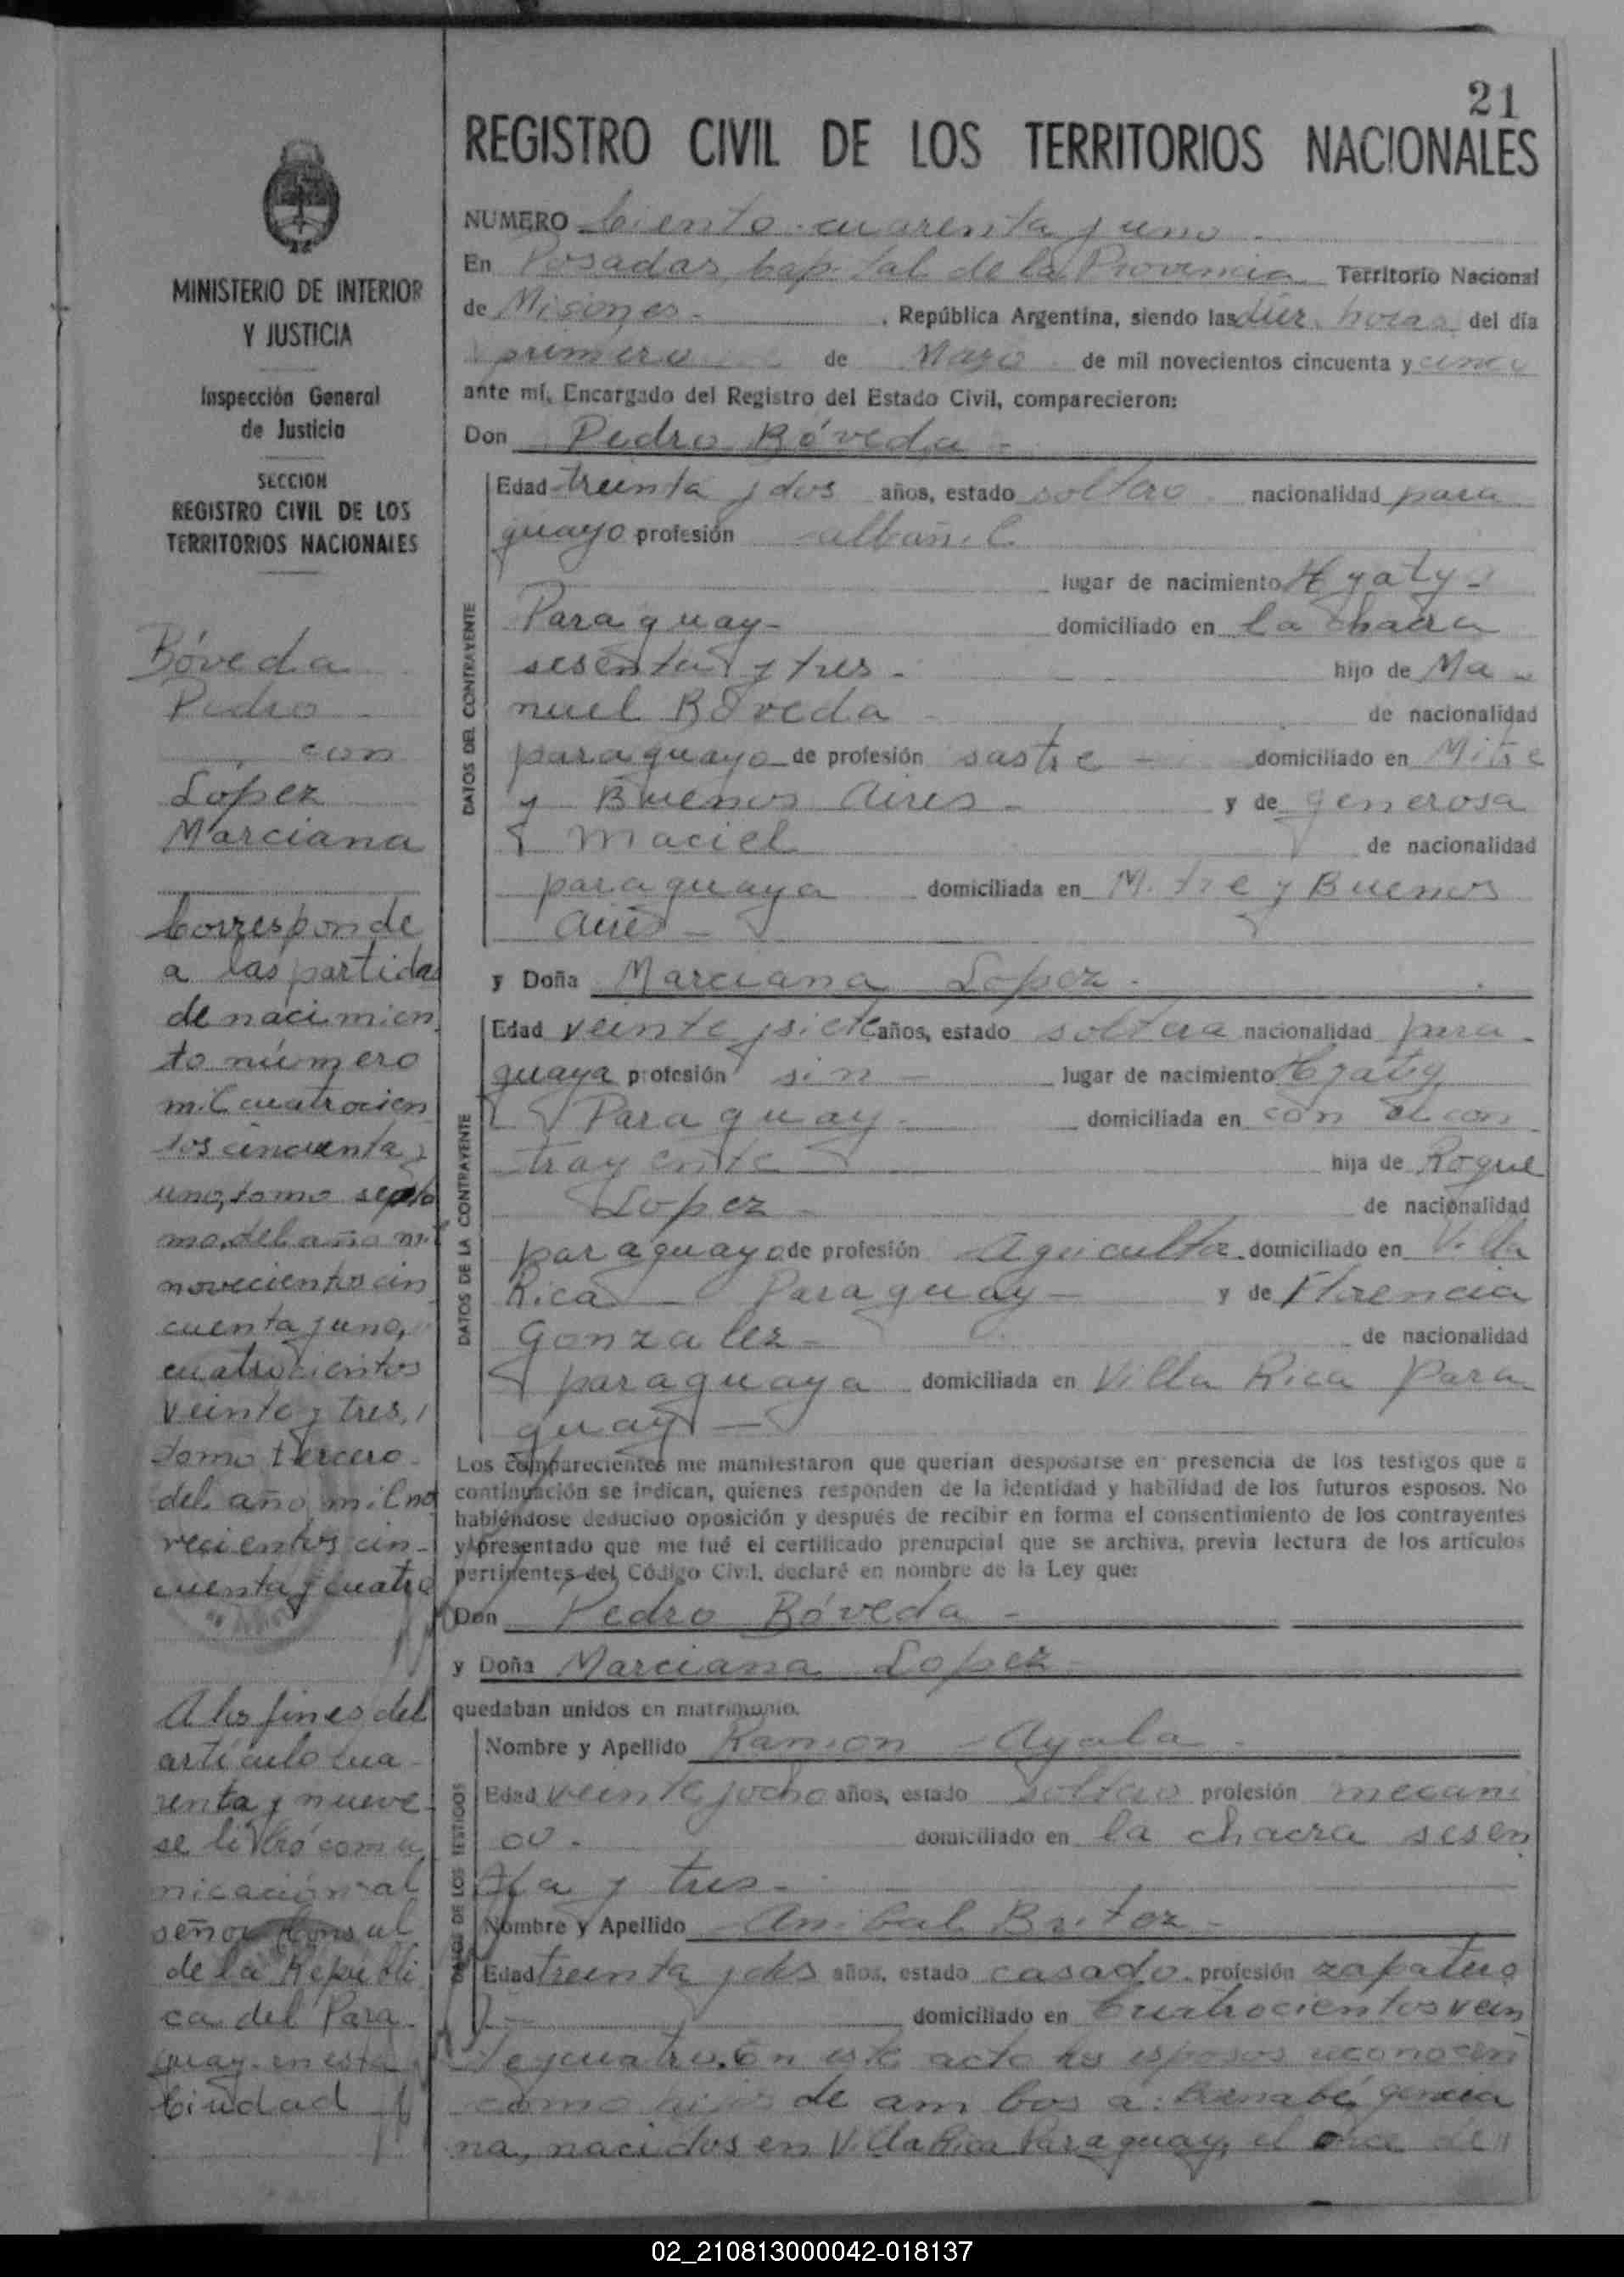 21
REGISTRO CIVIL DE LOS TERRITORIOS NACIONALES
MINISTERIO DE INTERIOR
Y JUSTICIA
Inspección General
de Justicia
SECCION
REGISTRO CIVIL DE LOS
TERRITORIOS NACIONALES
Bóveda
Pedro
con
López
Marciana
Corresponde
a las partidas
de nacimien
to número
mil cuatrocien
tos cincuenta y
uno, tomo sépti
mo, del año mil
novecientos cin
cuenta y uno,
cuatrocientos
veinte y tres,
tomo tercero
del año mil no
vecientos cin-
cuenta y cuatro
A los fines del
artículo cua-
renta y nueve
se libró comu
nicación al
señor Consul
de la Repúbli
ca del Para-
guay en esta
Ciudad
NUMERO Ciento cuarenta y uno.
En Posadas, Capital de la Provincia Territorio Nacional
de Misiones. , República Argentina, siendo las diez horas del día
primero de Mayo de mil novecientos cincuenta y cinco
ante mí, Encargado del Registro del Estado Civil, comparecieron:
Don Pedro Bóveda -
DATOS DEL CONTRAYENTE
Edad treinta y dos años, estado soltero nacionalidad para
guayo profesión albañil
lugar de nacimiento
Paraguay - domiciliado en la chacra
sesenta y tres - hijo de Ma -
nuel Bóveda - de nacionalidad
paraguayo de profesión sastre - domiciliado en Mitre
y Buenos Aires - y de generosa
Maciel de nacionalidad
paraguaya domiciliada en Mitre y Buenos
Aires -
y Doña Marciana Lopez -
DATOS DE LA CONTRAYENTE
Edad veinte y siete años, estado soltera nacionalidad para -
guaya profesión sin - lugar de nacimiento
Paraguay - domiciliada en con el con
trayente hija de Roque
Lopez - de nacionalidad
paraguayo de profesión Agricultor domiciliado en Villa
Rica - Paraguay - y de Florencia
Gonzalez - de nacionalidad
paraguaya domiciliada en Villa Rica Para
guay -
Los comparecientes me manifestaron que querían desposarse en presencia de los testigos que a
continuación se indican, quienes responden de la identidad y habilidad de los futuros esposos. No
habiéndose deducido oposición y después de recibir en forma el consentimiento de los contrayentes
y presentado que me fué el certificado prenupcial que se archiva, previa lectura de los artículos
pertinentes del Código Civil, declaré en nombre de la Ley que:
Don Pedro Bóveda -
y Doña Marciana Lopez
quedaban unidos en matrimonio.
DATOS DE LOS TESTIGOS
Nombre y Apellido Ramon Ayala -
Edad veinte y ocho años, estado soltero profesión mecani
co. domiciliado en la chacra sesen
ta y tres -
Nombre y Apellido Anibal Britez -
Edad treinta y dos años, estado casado profesión zapatero
domiciliado en Cuatrocientos vein
te y cuatro. En este acto los esposos reconocen
como hijos de ambos a: Bernabé,
na, nacidos en Villa Rica Paraguay, el once de
02_210813000042-018137